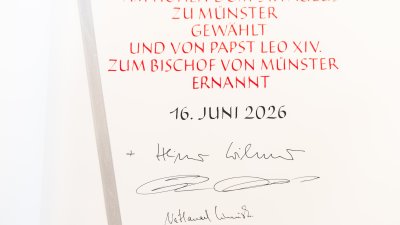 ZU MÜNSTER
GEWÄHLT
UND VON PAPST LEO XIV.
ZUM BISCHOF VON MÜNSTER
ERNANNT
16. JUNI 2026
+ Heiner Wilmer
Nathanael